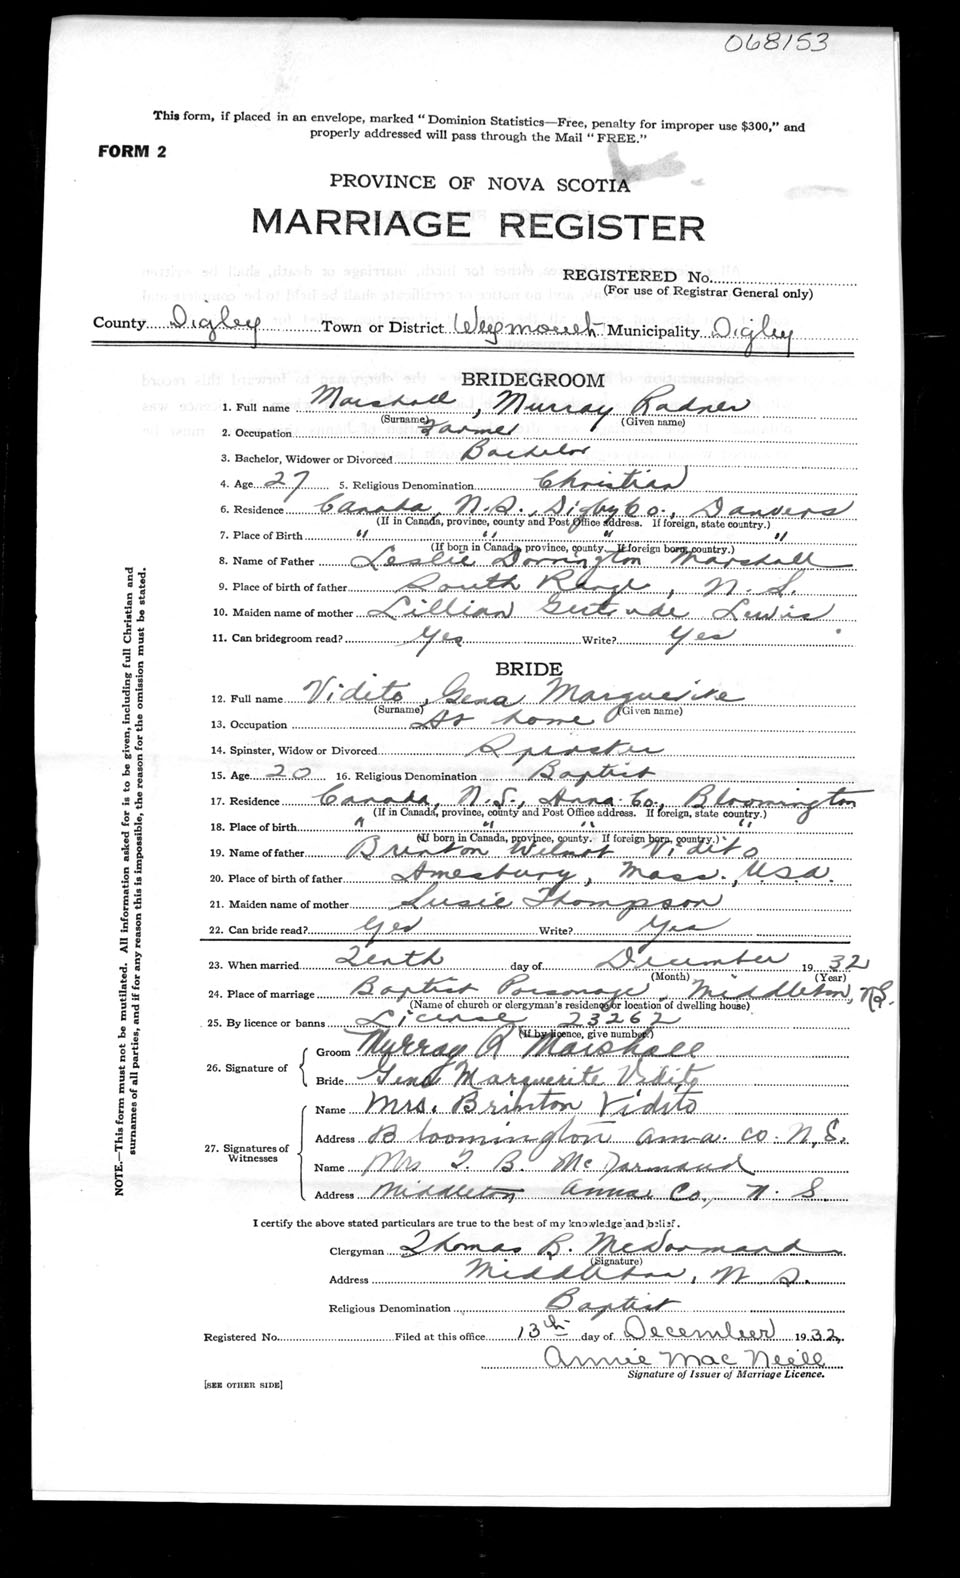 068153
This form, if placed in an envelope, marked "Dominion Statistics—Free, penalty for improper use $300," and
properly addressed will pass through the Mail "FREE."
FORM 2
PROVINCE OF NOVA SCOTIA
MARRIAGE REGISTER
REGISTERED No.
(For use of Registrar General only)
County Digby Town or District Weymouth Municipality Digby
BRIDEGROOM
1. Full name Marshall, Murray Radner
(Surname) (Given name)
2. Occupation Farmer
3. Bachelor, Widower or Divorced Bachelor
4. Age 27 5. Religious Denomination Christian
6. Residence Canada, N.S., Digby Co., Danvers
(If in Canada, province, county and Post Office address. If foreign, state country.)
7. Place of Birth " " " "
(If born in Canada, province, county. If foreign born, country.)
8. Name of Father Leslie Dorrington Marshall
9. Place of birth of father South Range, N.S.
10. Maiden name of mother Lillian Gertrude Lewis
11. Can bridegroom read? Yes Write? Yes
BRIDE
12. Full name Vidito, Gena Marguerite
(Surname) (Given name)
13. Occupation At home
14. Spinster, Widow or Divorced Spinster
15. Age 20 16. Religious Denomination Baptist
17. Residence Canada, N.S., Anna. Co., Bloomington
(If in Canada, province, county and Post Office address. If foreign, state country.)
18. Place of birth " " " "
(If born in Canada, province, county. If foreign born, country.)
19. Name of father Brinton Wilmot Vidito
20. Place of birth of father Amesbury, Mass., U.S.A.
21. Maiden name of mother Susie Thompson
22. Can bride read? Yes Write? Yes
23. When married Tenth day of December 1932
(Month) (Year)
24. Place of marriage Baptist Parsonage, Middleton, N.S.
(Name of church or clergyman's residence or location of dwelling house)
25. By licence or banns License 23262
(If by licence, give number.)
26. Signature of Groom Murray R Marshall
Bride Gena Marguerite Vidito
27. Signatures of Witnesses Name Mrs. Brinton Vidito
Address Bloomington Anna. Co. N.S.
Name Mrs T. B. McDormand
Address Middleton Annas Co., N.S.
I certify the above stated particulars are true to the best of my knowledge and belief.
Clergyman Thomas B. McDormand
(Signature)
Address Middleton, N.S.
Religious Denomination Baptist
Registered No. Filed at this office 13th day of December 1932
Annie MacNeill
Signature of Issuer of Marriage Licence.
[SEE OTHER SIDE]
NOTE.—This form must not be mutilated. All information asked for is to be given, including full Christian and
surnames of all parties, and if for any reason this is impossible, the reason for the omission must be stated.